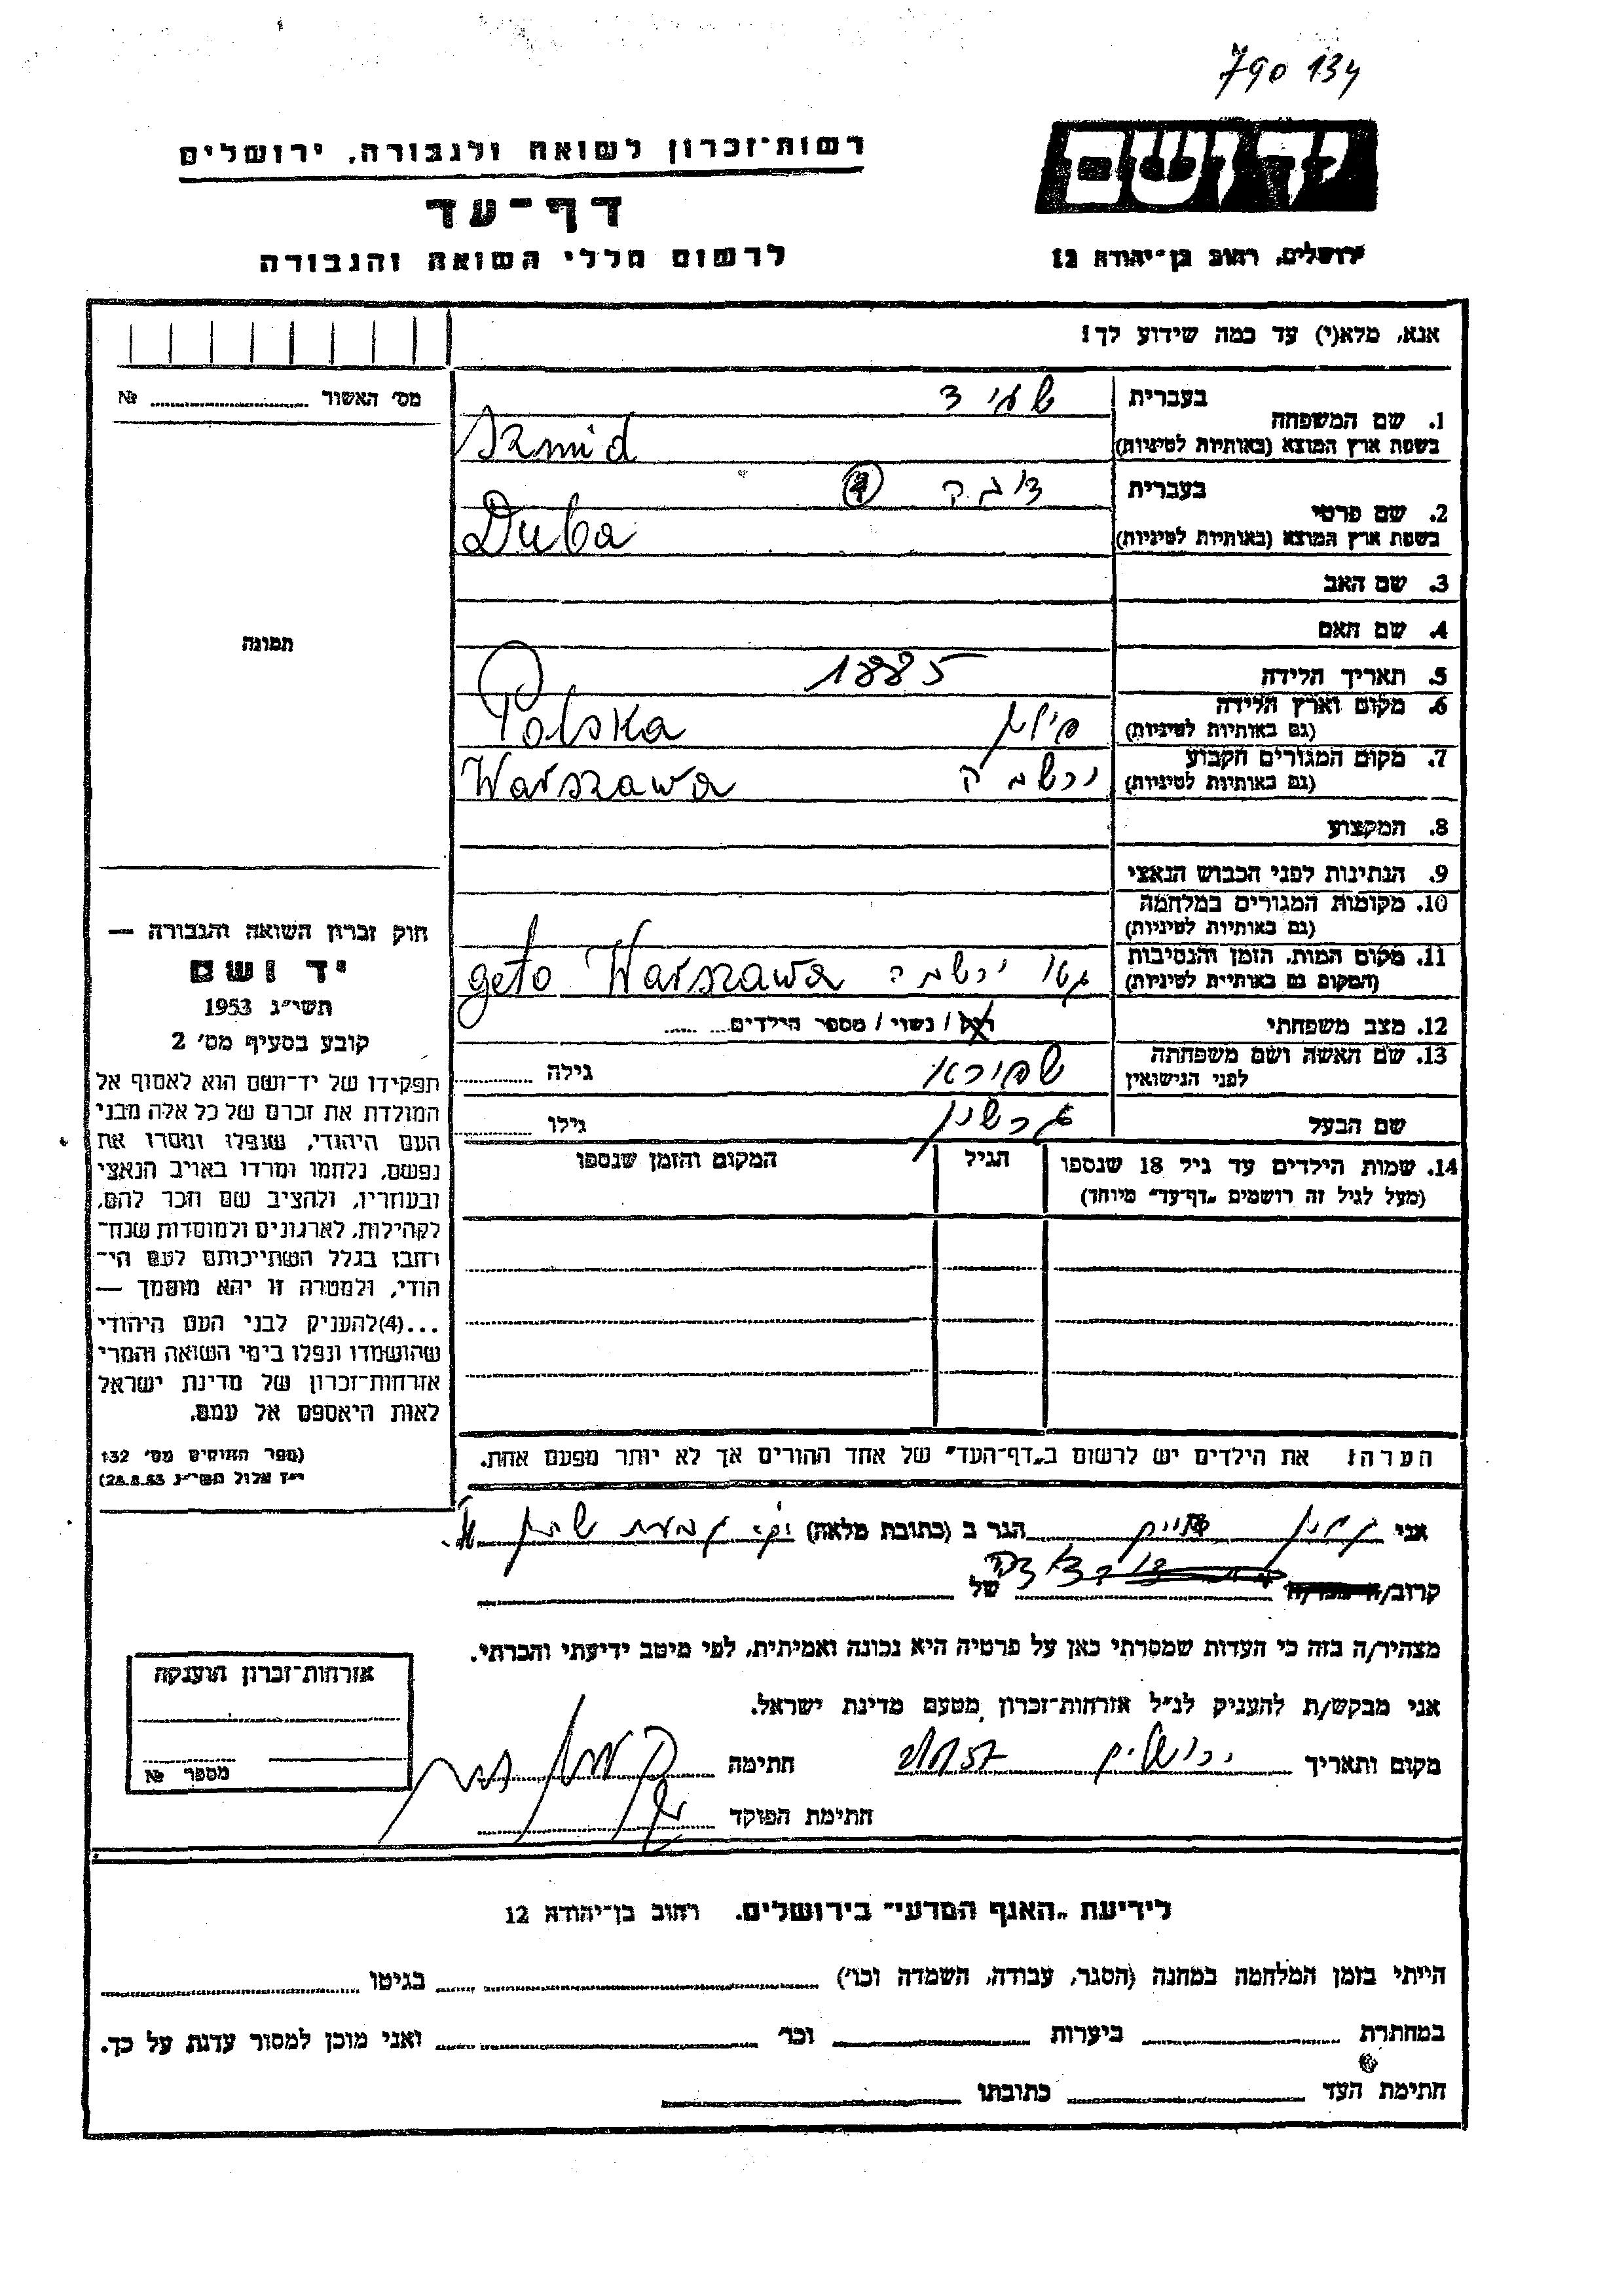 790 134
רשות־זכרון לשואה ולגבורה, ירושלים
יד ושם
דף־עד
לרשום חללי השואה והגבורה
ירושלים, רחוב בן־יהודה 12
אנא, מלא(י) עד כמה שידוע לך!
מס׳ האשור № ..........
1. שם המשפחה
בעברית שמיד
בשפת ארץ המוצא (באותיות לטיניות) Szmid
2. שם פרטי
בעברית דובה
בשפת ארץ המוצא (באותיות לטיניות) Duba
3. שם האב
4. שם האם
תמונה
5. תאריך הלידה 1885
6. מקום וארץ הלידה
(גם באותיות לטיניות) פולין Polska
7. מקום המגורים הקבוע
(גם באותיות לטיניות) ורשבה Warszawa
8. המקצוע
9. הנתינות לפני הכבוש הנאצי
10. מקומות המגורים במלחמה
(גם באותיות לטיניות)
11. מקום המות, הזמן והנסיבות
(המקום גם באותיות לטיניות) גטו ורשבה geto Warszawa
12. מצב משפחתי רוק / נשוי / מספר הילדים ......
13. שם האשה ושם משפחתה
לפני הנישואין שפירא גילה ..........
שם הבעל גרשון גילו ..........
14. שמות הילדים עד גיל 18 שנספו
(מעל לגיל זה רושמים „דף־עד״ מיוחד)
הגיל
המקום והזמן שנספו
חוק זכרון השואה והגבורה —
יד ושם
תשי״ג 1953
קובע בסעיף מס׳ 2
תפקידו של יד־ושם הוא לאסוף אל
המולדת את זכרם של כל אלה מבני
העם היהודי, שנפלו ומסרו את
נפשם, נלחמו ומרדו באויב הנאצי
ובעוזריו, ולהציב שם וזכר להם,
לקהילות, לארגונים ולמוסדות שנח־
רחבו בגלל השתייכותם לעם הי־
הודי, ולמטרה זו יהא מוסמך —
...(4)להעניק לבני העם היהודי
שהושמדו ונפלו בימי השואה והמרי
אזרחות־זכרון של מדינת ישראל
לאות היאספם אל עמם.
(ספר החוקים מס׳ 132
י״ז אלול תשי״ג 28.8.53)
הערה: את הילדים יש לרשום ב„דף־העד״ של אחד ההורים אך לא יותר מפעם אחת.
אני הגר ב (כתובת מלאה)
קרוב/ה של
מצהיר/ה בזה כי העדות שמסרתי כאן על פרטיה היא נכונה ואמיתית, לפי מיטב ידיעתי והכרתי.
אני מבקש/ת להעניק לנ״ל אזרחות־זכרון מטעם מדינת ישראל.
מקום ותאריך ירושלים חתימה
חתימת הפוקד
אזרחות־זכרון הוענקה
מספר №
לידיעת „האגף המדעי״ בירושלים. רחוב בן־יהודה 12
הייתי בזמן המלחמה במחנה (הסגר, עבודה, השמדה וכו׳) בגיטו
במחתרת ביערות וכו׳ ואני מוכן למסור עדות על כך.
חתימת העד כתובתו